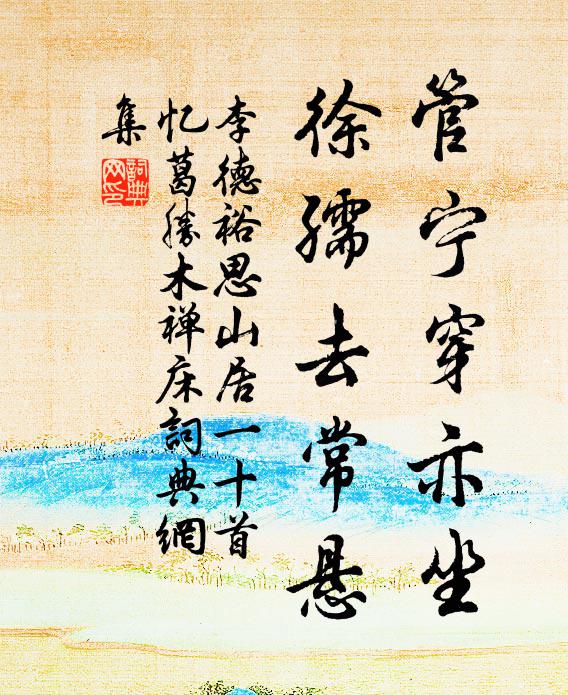 管宁穿亦坐
徐孺去常悬
李德裕思山居一十首
忆葛胜木禅床詞典網
集
詞典
网印